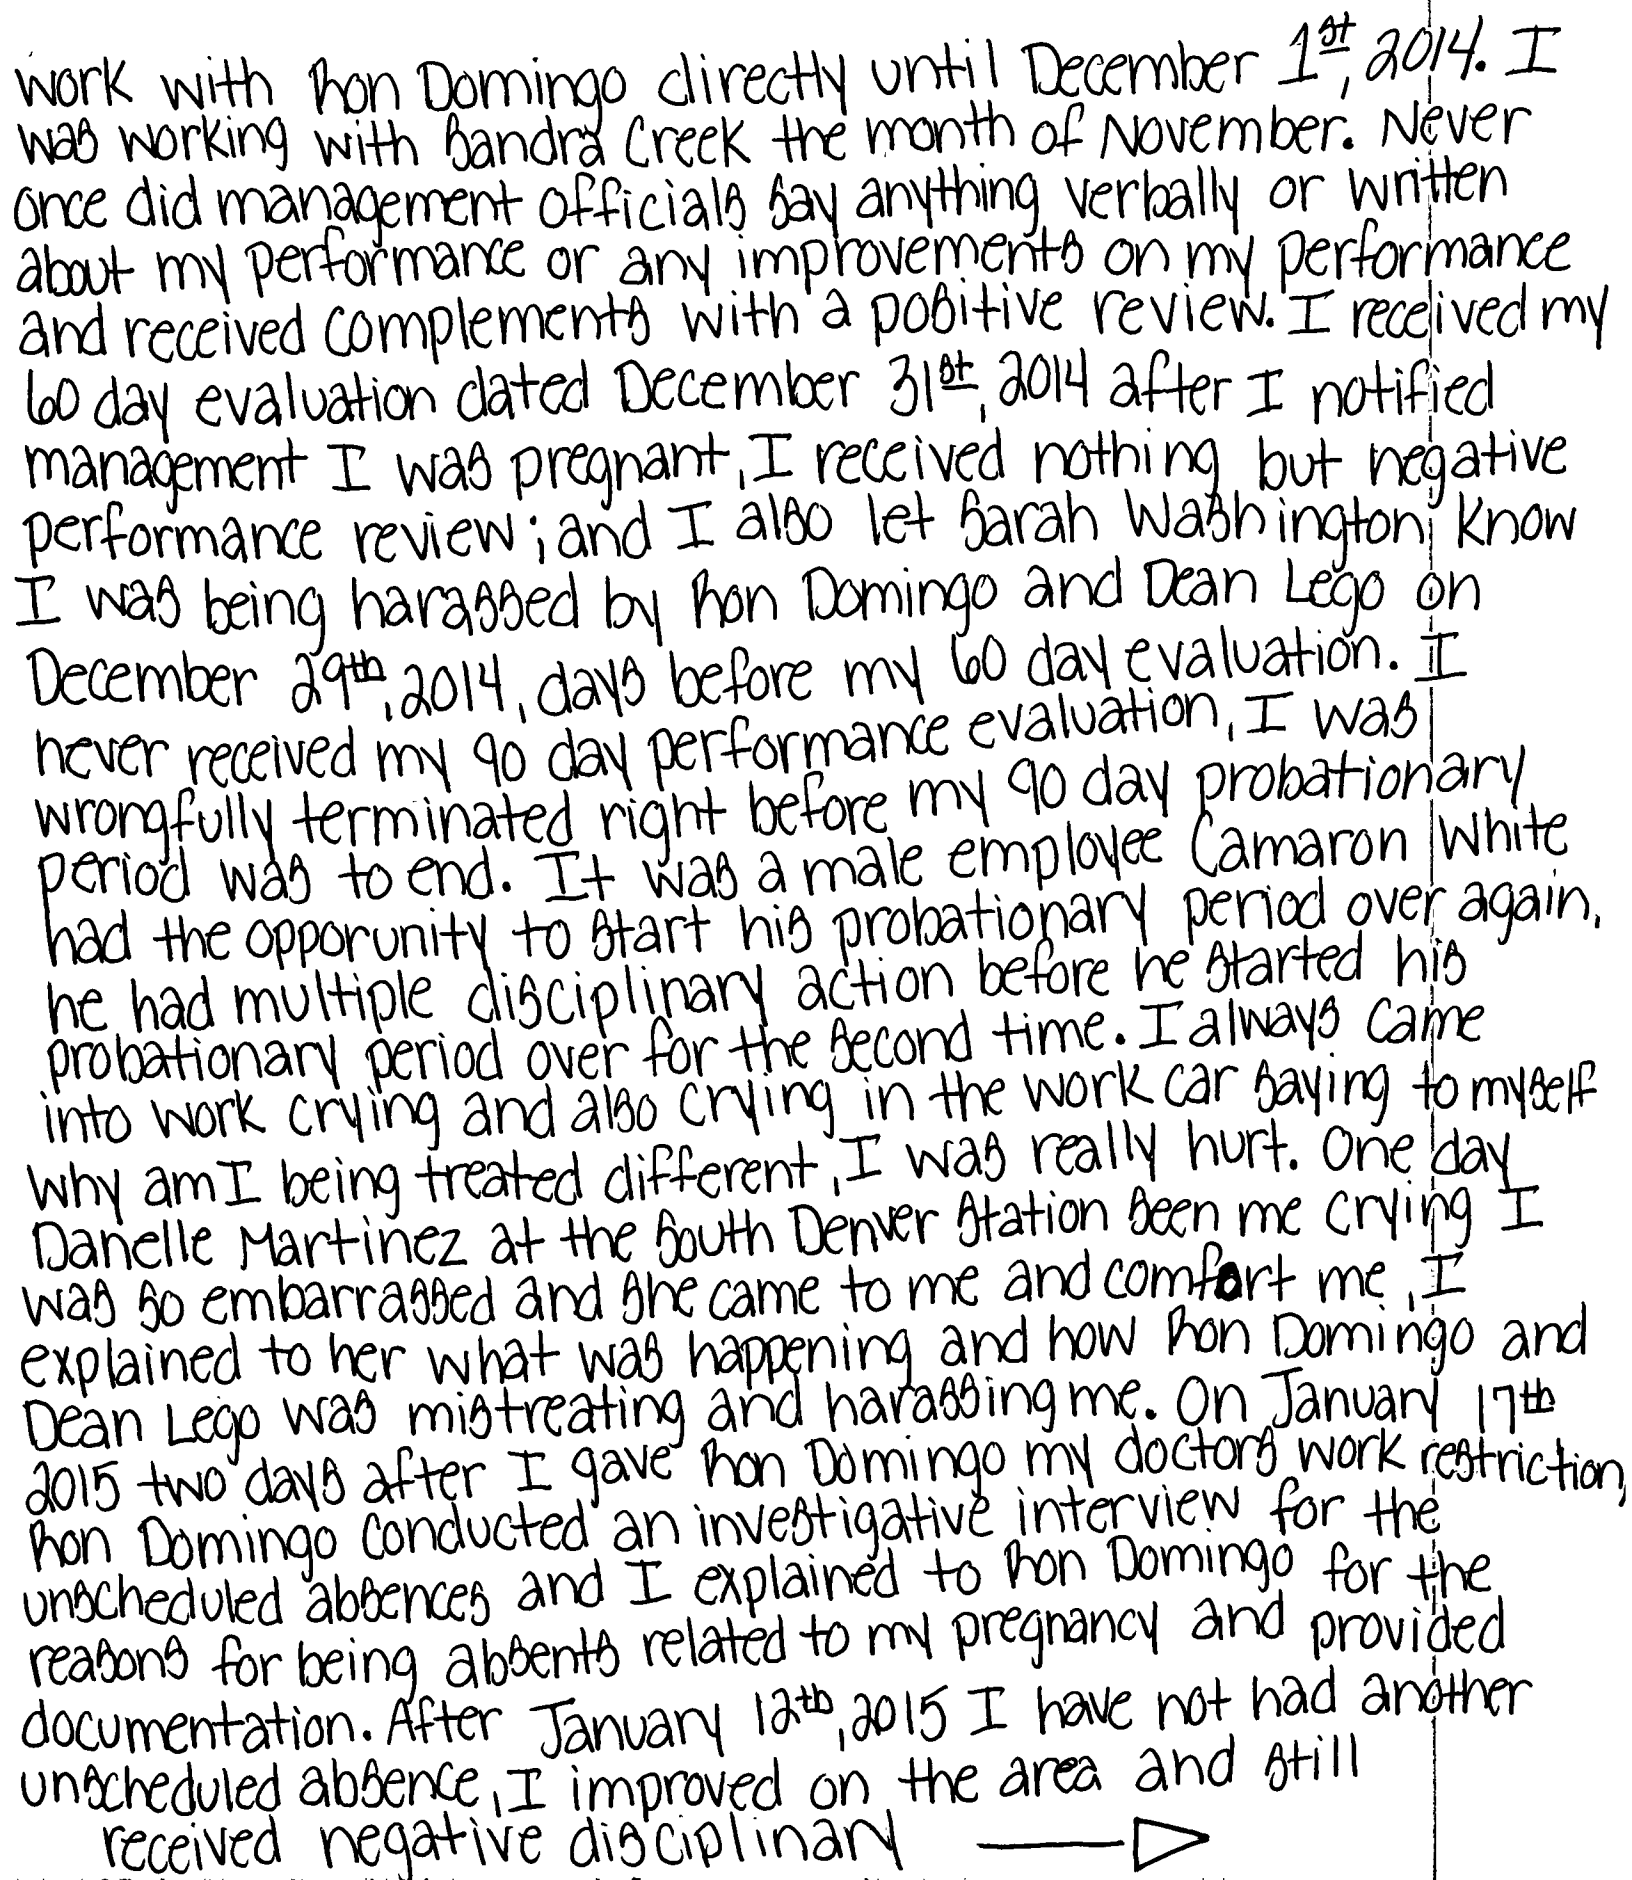 work with Ron Domingo directly until December 1st, 2014. I
was working with Sandra Creek the month of November. Never
once did management officials say anything verbally or written
about my performance or any improvements on my performance
and received complements with a positive review. I received my
60 day evaluation dated December 31st, 2014 after I notified
management I was pregnant, I received nothing but negative
performance review; and I also let Sarah Washington know
I was being harassed by Ron Domingo and Dean Lego on
December 29th, 2014, days before my 60 day evaluation. I
never received my 90 day performance evaluation, I was
wrongfully terminated right before my 90 day probationary
period was to end. It was a male employee Camaron White
had the opporunity to start his probationary period over again,
he had multiple disciplinary action before he started his
probationary period over for the second time. I always came
into work crying and also crying in the work car saying to myself
why am I being treated different, I was really hurt. One day
Danelle Martinez at the South Denver Station seen me crying I
was so embarrassed and she came to me and comfort me, I
explained to her what was happening and how Ron Domingo and
Dean Lego was mistreating and harassing me. On January 17th
2015 two days after I gave Ron Domingo my doctors work restriction,
Ron Domingo conducted an investigative interview for the
unscheduled absences and I explained to Ron Domingo for the
reasons for being absents related to my pregnancy and provided
documentation. After January 12th, 2015 I have not had another
unscheduled absence, I improved on the area and still
received negative disciplinary →